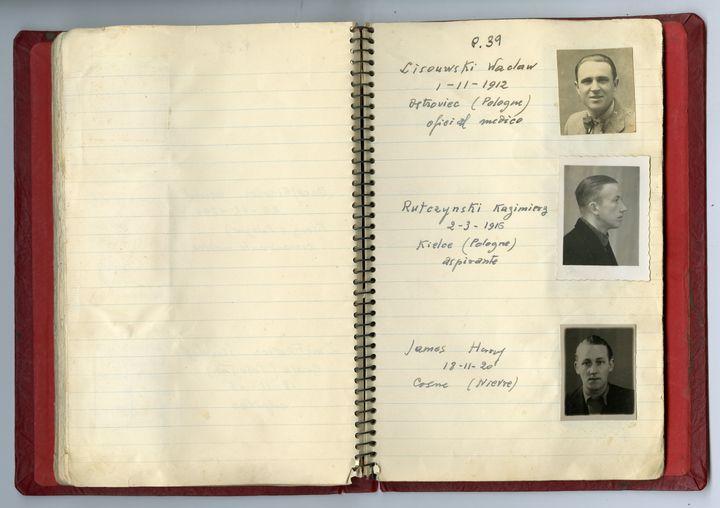 P.39
Lisouwski Waclaw
1-11-1912
Ostroviec (Pologne)
oficial medico
Rutczynski Kazimierz
2-3-1916
Kielce (Pologne)
aspirante
James Henry
18-11-20
Cosne (Nievre)